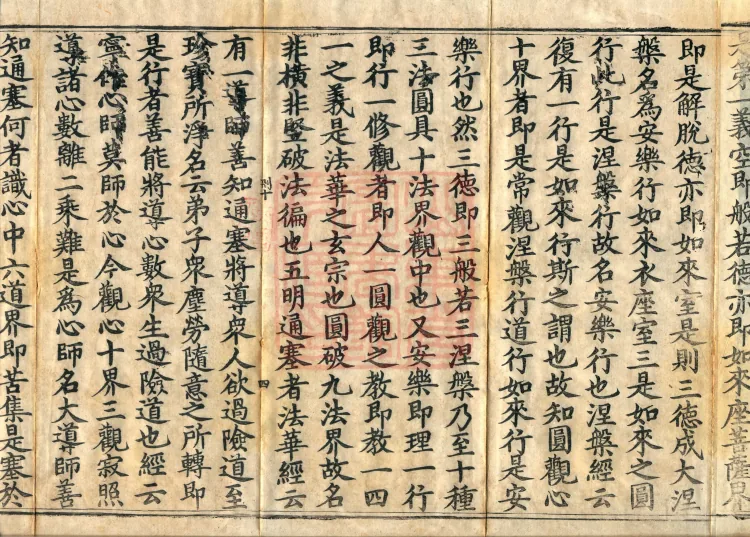 第一義空即般若德亦即如來座菩薩思
即是解脫德亦即如來室是則三德成大涅
槃名為安樂行如來衣座室三是如來之圓
行此行是涅槃行故名安樂行也涅槃經云
復有一行是如來行斯之謂也故知圓觀心
十界者即是常觀涅槃行道行如來行是安
樂行也然三德即三般若三涅槃乃至十種
三法圓具十法界觀中也又安樂即理一行
即行一修觀者即人一圓觀之教即教一四
一之義是法華之玄宗也圓破九法界故名
非橫非豎破法徧也五明通塞者法華經云
有一導師善知通塞將導眾人欲過險道至
珍寶所淨名云弟子眾塵勞隨意之所轉即
是行者善能將導心數眾生過險道也經云
寧作心師莫師於心今觀心十界三觀寂照
導諸心數離二乘難是為心師名大導師善
知通塞何者識心中六道界即苦集是塞於
四